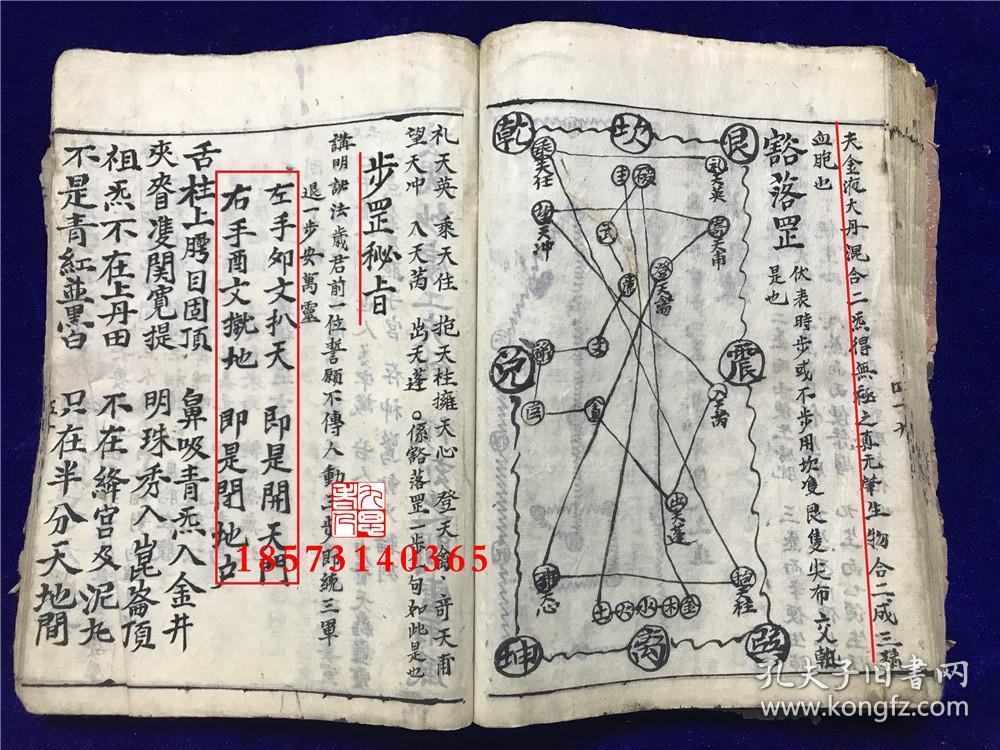 夫金液大丹混合二炁得無極之真元肇生物合二成三
血胞也
豁落罡
伏表時步或不步用坎隻艮隻尖布交
是也
乾 坎 艮
乘天任 礼天英
望天冲 奇天甫
登天禽
兌 震
入天芮
出天蓬
擁天心 抱天柱
土火水木金
坤 离 巽
礼天英 乘天任 抱天柱擁天心 登天禽 奇天甫
望天冲 入天芮 出天蓬。係豁落罡一步一句如此是也
步罡秘旨
講明訣法歲君前一位誓願不傳人動三步即統三軍
退一步安萬靈
左手卯文扒天 即是開天門
右手酉文撳地 即是閉地户
舌柱上腭目固頂 鼻吸青炁入金井
夾脊雙関寬提 明珠秀入崑崙頂
祖炁不在上丹田 不在絳宫及泥丸
不是青紅並黑白 只在半分天地間
18573140365
孔夫子旧书网
www.kongfz.com